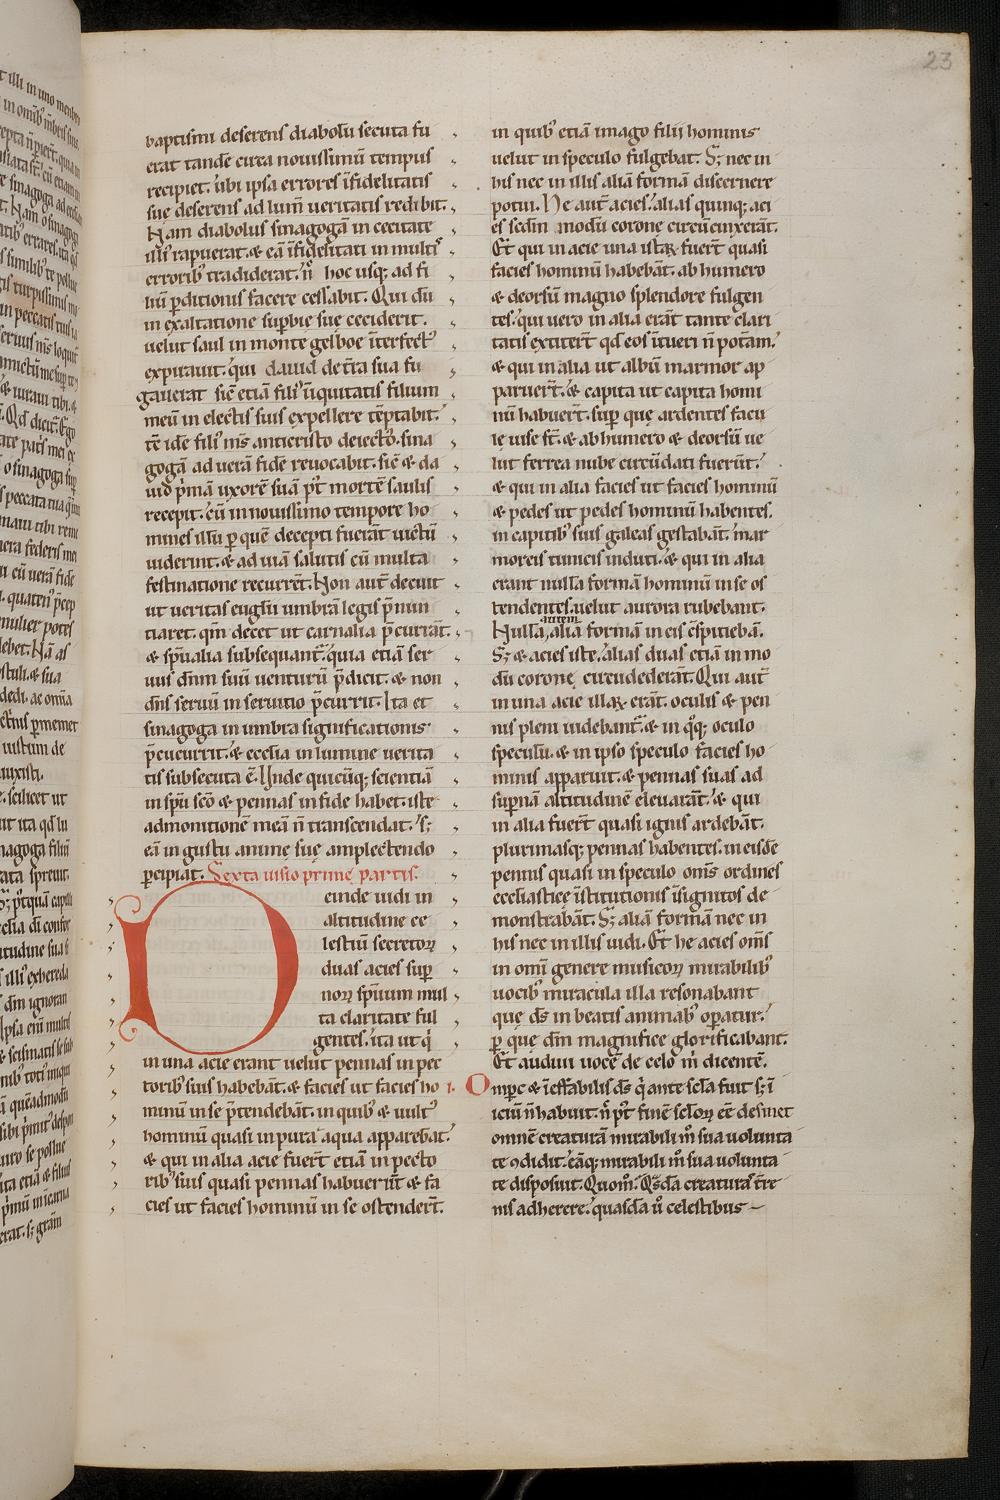 23
baptismi deserens diabolū secuta fu
erat tandē circa nouissimū tempus
recipiet. ubi ipsa errores īfidelitatis
suę deserens ad lum̄ ueritatis redibit.
Nam diabolus sinagogā in cecitate
illi' rapuerat. & eā īfidelitati in multis
erroribꝰ tradiderat. n̄ hoc usq; ad fi
liū ꝑditionis facere cessabit. Qui dū
in exaltatione suꝑbie sue ceciderit.
uelut saul in monte gelboe īterfectꝰ
expirauit. qui dauid de t̄ra sua fu
gauerat sic̄ etiā filiꝰ īiquitatis filium
meū in electis suis expellere tēptabit.
tē idē filiꝰ m̄s anticristo deiecto. sina
gogā ad uerā fidē reuocabit. sic̄ & da
uid p̄mā uxorē suā p̄t mortē saulis
recepit. cū in nouissimo tempore ho
mines illū ꝑ quē decepti fuerāt uictū
uiderint. & ad uiā salutis cū multa
festinatione recurrēt. Non aut̄ decuit
ut ueritas euḡlii umbrā legis p̄nun
tiaret. qm̄ decet ut carnalia p̄currāt.
& sp̄ualia subsequant̄. quia etiā ser
uus dn̄m suū uenturū p̄dicit. & non
dn̄s seruū in seruitio p̄currit. Ita et
sinagoga in umbra significationis
p̄cucurrit. & ecclia in lumine uerita
tis subsecuta ē. Unde quicūq; scientiā
in sp̄u sc̄o & pennas in fide habet. iste
admonitionē meā n̄ transcendat. s;
eā in gustu anime suę amplectendo
ꝑcipiat. Sexta uisio prime partis.
Deinde uidi in
altitudine ce
lestiū secretoꝝ
duas acies suꝑ
noꝝ sp̄uum mul
ta claritate ful
gentes. ita ut q̄
in una acie erant uelut pennas in pec
toribꝰ suis habebāt. & facies ut facies ho
minū in se p̄tendebāt. in quibꝰ & uultꝰ
hominū quasi in pura aqua apparebāt.
& qui in alia acie fuer̄t etiā in pecto
ribꝰ suis quasi pennas habuerūt & fa
cies ut facies hominū in se ostender̄t.
in quibꝰ etiā imago filii hominis
uelut in speculo fulgebat. S; nec in
his nec in illis aliā formā discernere
potui. He aut̄ acies. alias quinq; aci
es sc̄dm modū coronę circūcinxerāt.
Et qui in acie una istaꝝ fuer̄t quasi
facies hominū habebāt. ab humero
& deorsū magno splendore fulgen
tes. qui uero in alia erāt tante clari
tatis extiter̄t qd̄ eos ītueri n̄ potam.
& qui in alia ut albū marmor ap
paruer̄t. & capita ut capita homi
nū habuer̄t. suꝑ que ardentes facu
le uise st̄. & ab humero & deorsū ue
lut ferrea nube circūdati fuerūt.
& qui in alia facies ut facies hominū
& pedes ut pedes hominū habentes.
in capitibꝰ suis galeas gestabāt. mar
moreis tunicis induti. & qui in alia
erant nullā formā hominū in se os
tendentes. uelut aurora rubebant.
Nullā autem aliā formā in eis c̄spitiebā.
S; & acies iste. alias duas etiā in mo
dū coronę circūdederāt. Qui aut̄
in una acie illaꝝ erāt. oculis & pen
nis pleni uidebant̄. & in q̄q; oculo
speculū. & in ipso speculo facies ho
minis apparuit. & pennas suas ad
suꝑnā altitudinē eleuarāt. & qui
in alia fuer̄t quasi ignis ardebāt.
plurimasq; pennas habentes. in eisdē
pennis quasi in speculo om̄s ordines
ecclesiasticę īstitutionis īsignitos de
monstrabāt. S; aliā formā nec in
his nec in illis uidi. Et he acies om̄s
in omī genere musicoꝝ mirabilibꝰ
uocibꝰ miracula illa resonabant
que ds̄ in beatis animabꝰ oꝑatur.
ꝑ que dm̄ magnifice glorificabant.
Et audiui uocē de celo m̄ dicentē.
1. Omp̄c & īeffabilis ds̄ q̄ ante sc̄la fuit s; ī
iciū n̄ habuit. n̄ p̄t finē sc̄loꝝ eē desinet
omnē creaturā mirabili m̊ sua uolunta
te ꝯdidit. eāq; mirabili m̊ sua uolunta
te disposuit. Quom̊. Q̄sdā creaturā t̄re
nis adherere. quasdā ū celestibus